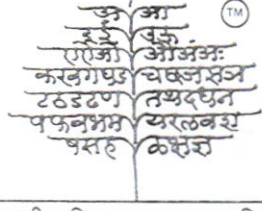 अ आ TM
इई उऊ
एऐओ औअंअः
कखगघङ चछजझञ
टठडढण तथदधन
पफबभम यरलवश
षसह ळक्षज्ञ